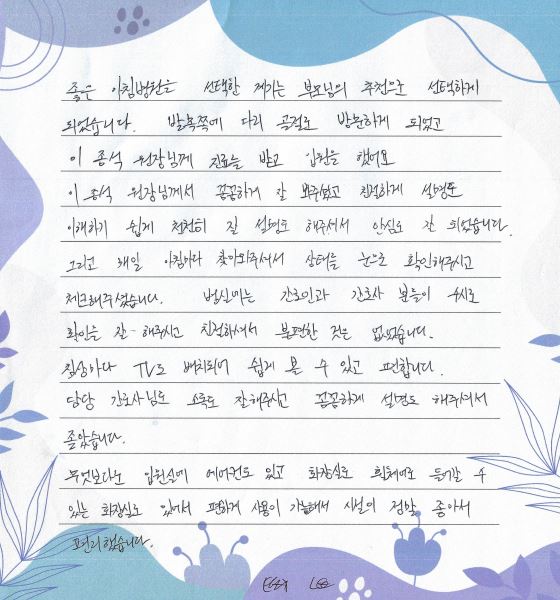 좋은 아침병원을 선택한 계기는 부모님의 추천으로 선택하게
되었습니다. 발목쪽에 다리 골절로 방문하게 되었고
이 종석 원장님께 진료를 받고 입원을 했어요
이 종석 원장님께서 꼼꼼하게 잘 봐주셨고 친절하게 설명도
이해하기 쉽게 천천히 잘 설명도 해주셔서 안심도 잔 되었습니다.
그리고 매일 아침마다 찾아와주셔서 상태를 눈으로 확인해주시고
체크해주셨습니다. 병실에는 간호인과 간호사 분들이 수시로
확인을 잘 해주시고 친절하셔서 불편한 것은 없었습니다.
침상마다 TV도 배치되어 쉽게 볼 수 있고 편합니다.
담당 간호사님도 소독도 잘해주시고 꼼꼼하게 설명도 해주셔서
좋았습니다.
무엇보다는 입원실에 에어컨도 있고 화장실도 휠체어로 들어갈 수
있는 화장실도 있어서 편하게 사용이 가능해서 시설의 정말 좋아서
편리했습니다.